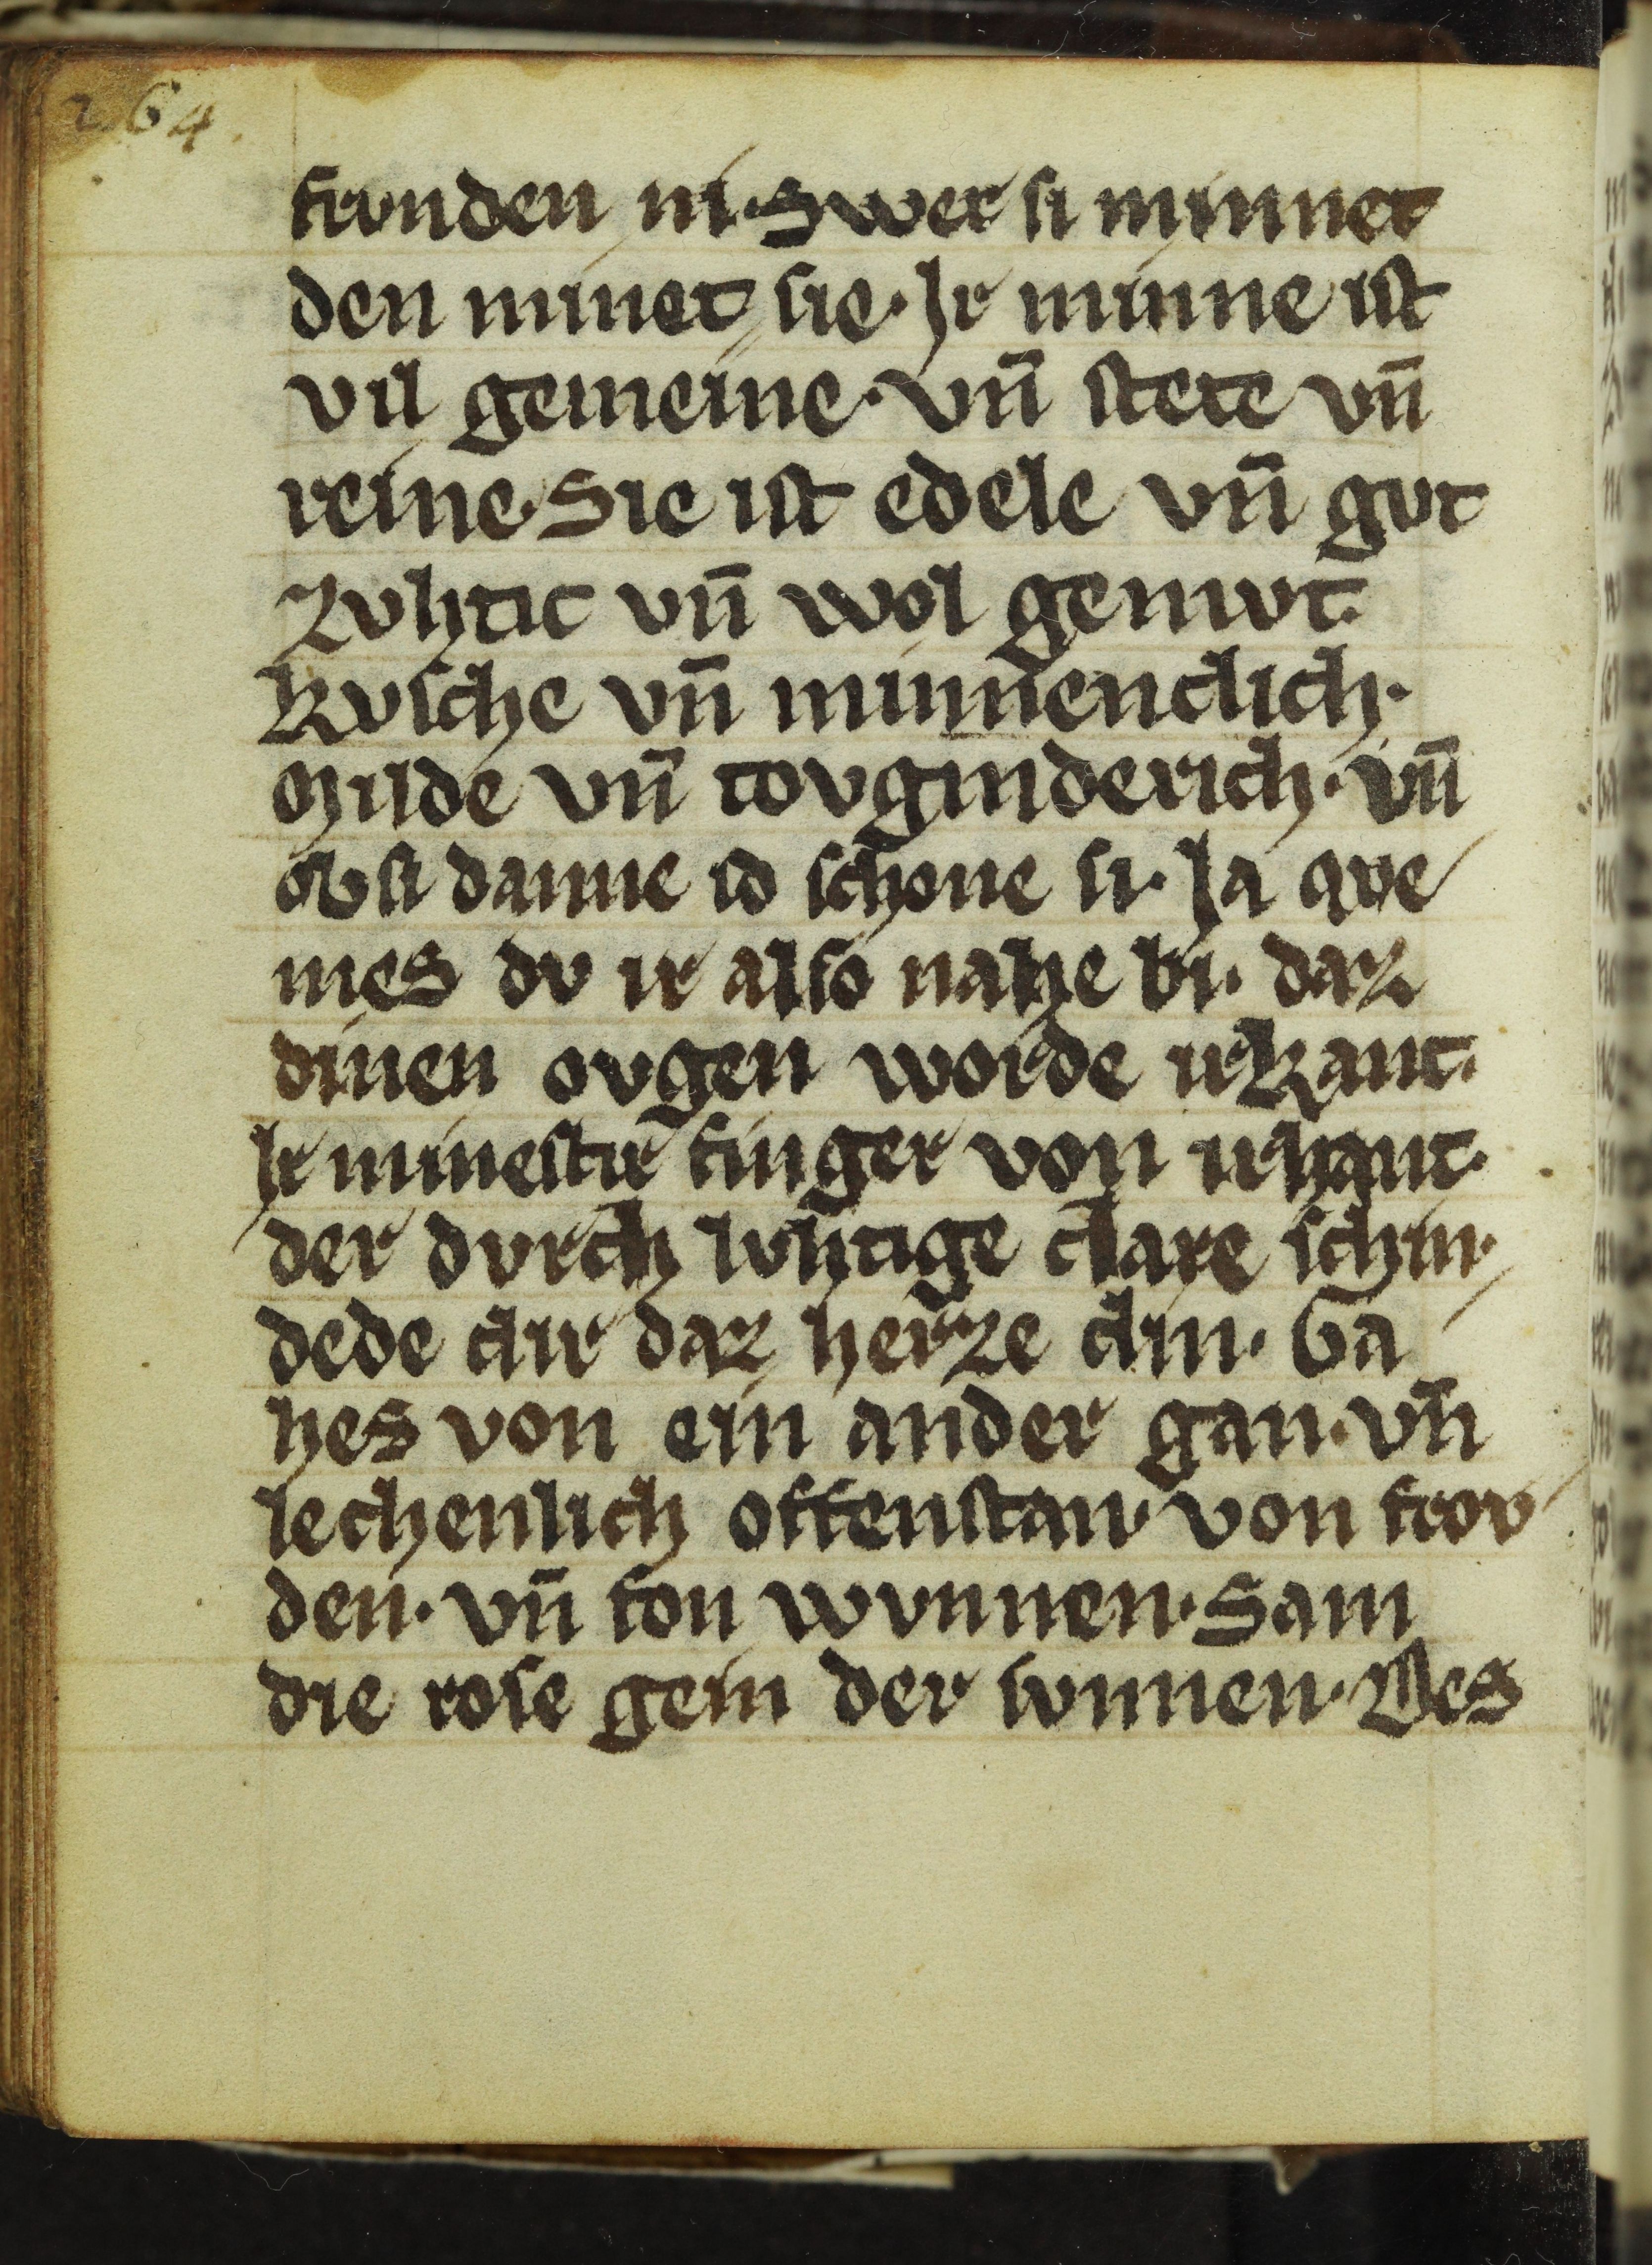 264.
frunden ni. Swer si minnet
den minet sie. Ir minne ist
vil gemeine. vn̄ stete vn̄
reine. Sie ist edele vn̄ gvt
Zvhtic vn̄ wol gemvt.
Kvsche vn̄ minnenclich.
Milde vn̄ tovginderich. vn̄
ob si danne so schone si. Ja qve
mes dv ir also nahe bi. daz
dinen ovgen worde irkant.
Ir minestir finger von irhant.
der dvrch lvhtige clare schin.
dede dir daz herze din. Ga
hes von ein ander gan. vn̄
lechenlich offenstan. von frov
den. vn̄ fon wvnnen. Sam
die rose gein der svnnen. Des